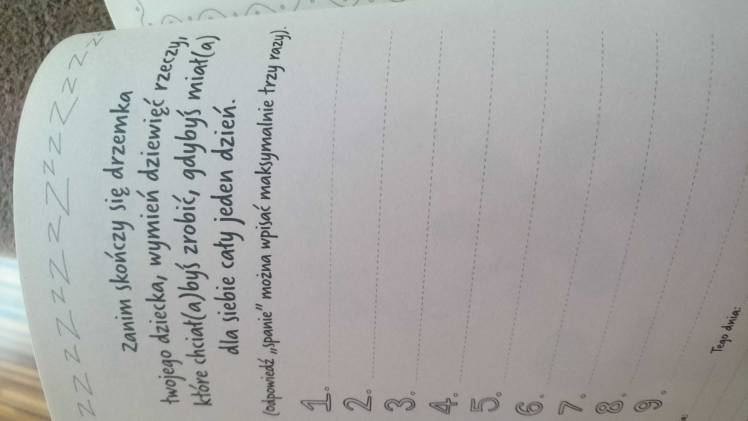 zz z z z z z z z z z z z
Zanim skończy się drzemka
twojego dziecka, wymień dziewięć rzeczy,
które chciał(a)byś zrobić, gdybyś miał(a)
dla siebie cały jeden dzień.
(odpowiedź „spanie” można wpisać maksymalnie trzy razy).
1.
2.
3.
4.
5.
6.
7.
8.
9.
Tego dnia: